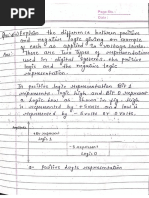 Page No.:
Date:
Explain the difference between positive
and negative logic giving an example
of each as applied to voltage levels.
Ans: There are two types of representation
used in digital systems the positive
logic and the negative logic
representation.
In positive logic representation Bit 1
represents logic high and Bit 0 represent
a logic low as shown in fig. High
is represented by +5 volts and low is
represented by - 5 volts or 0 volts.
+Ve represent
logic 1
logic 0
Positive logic representation